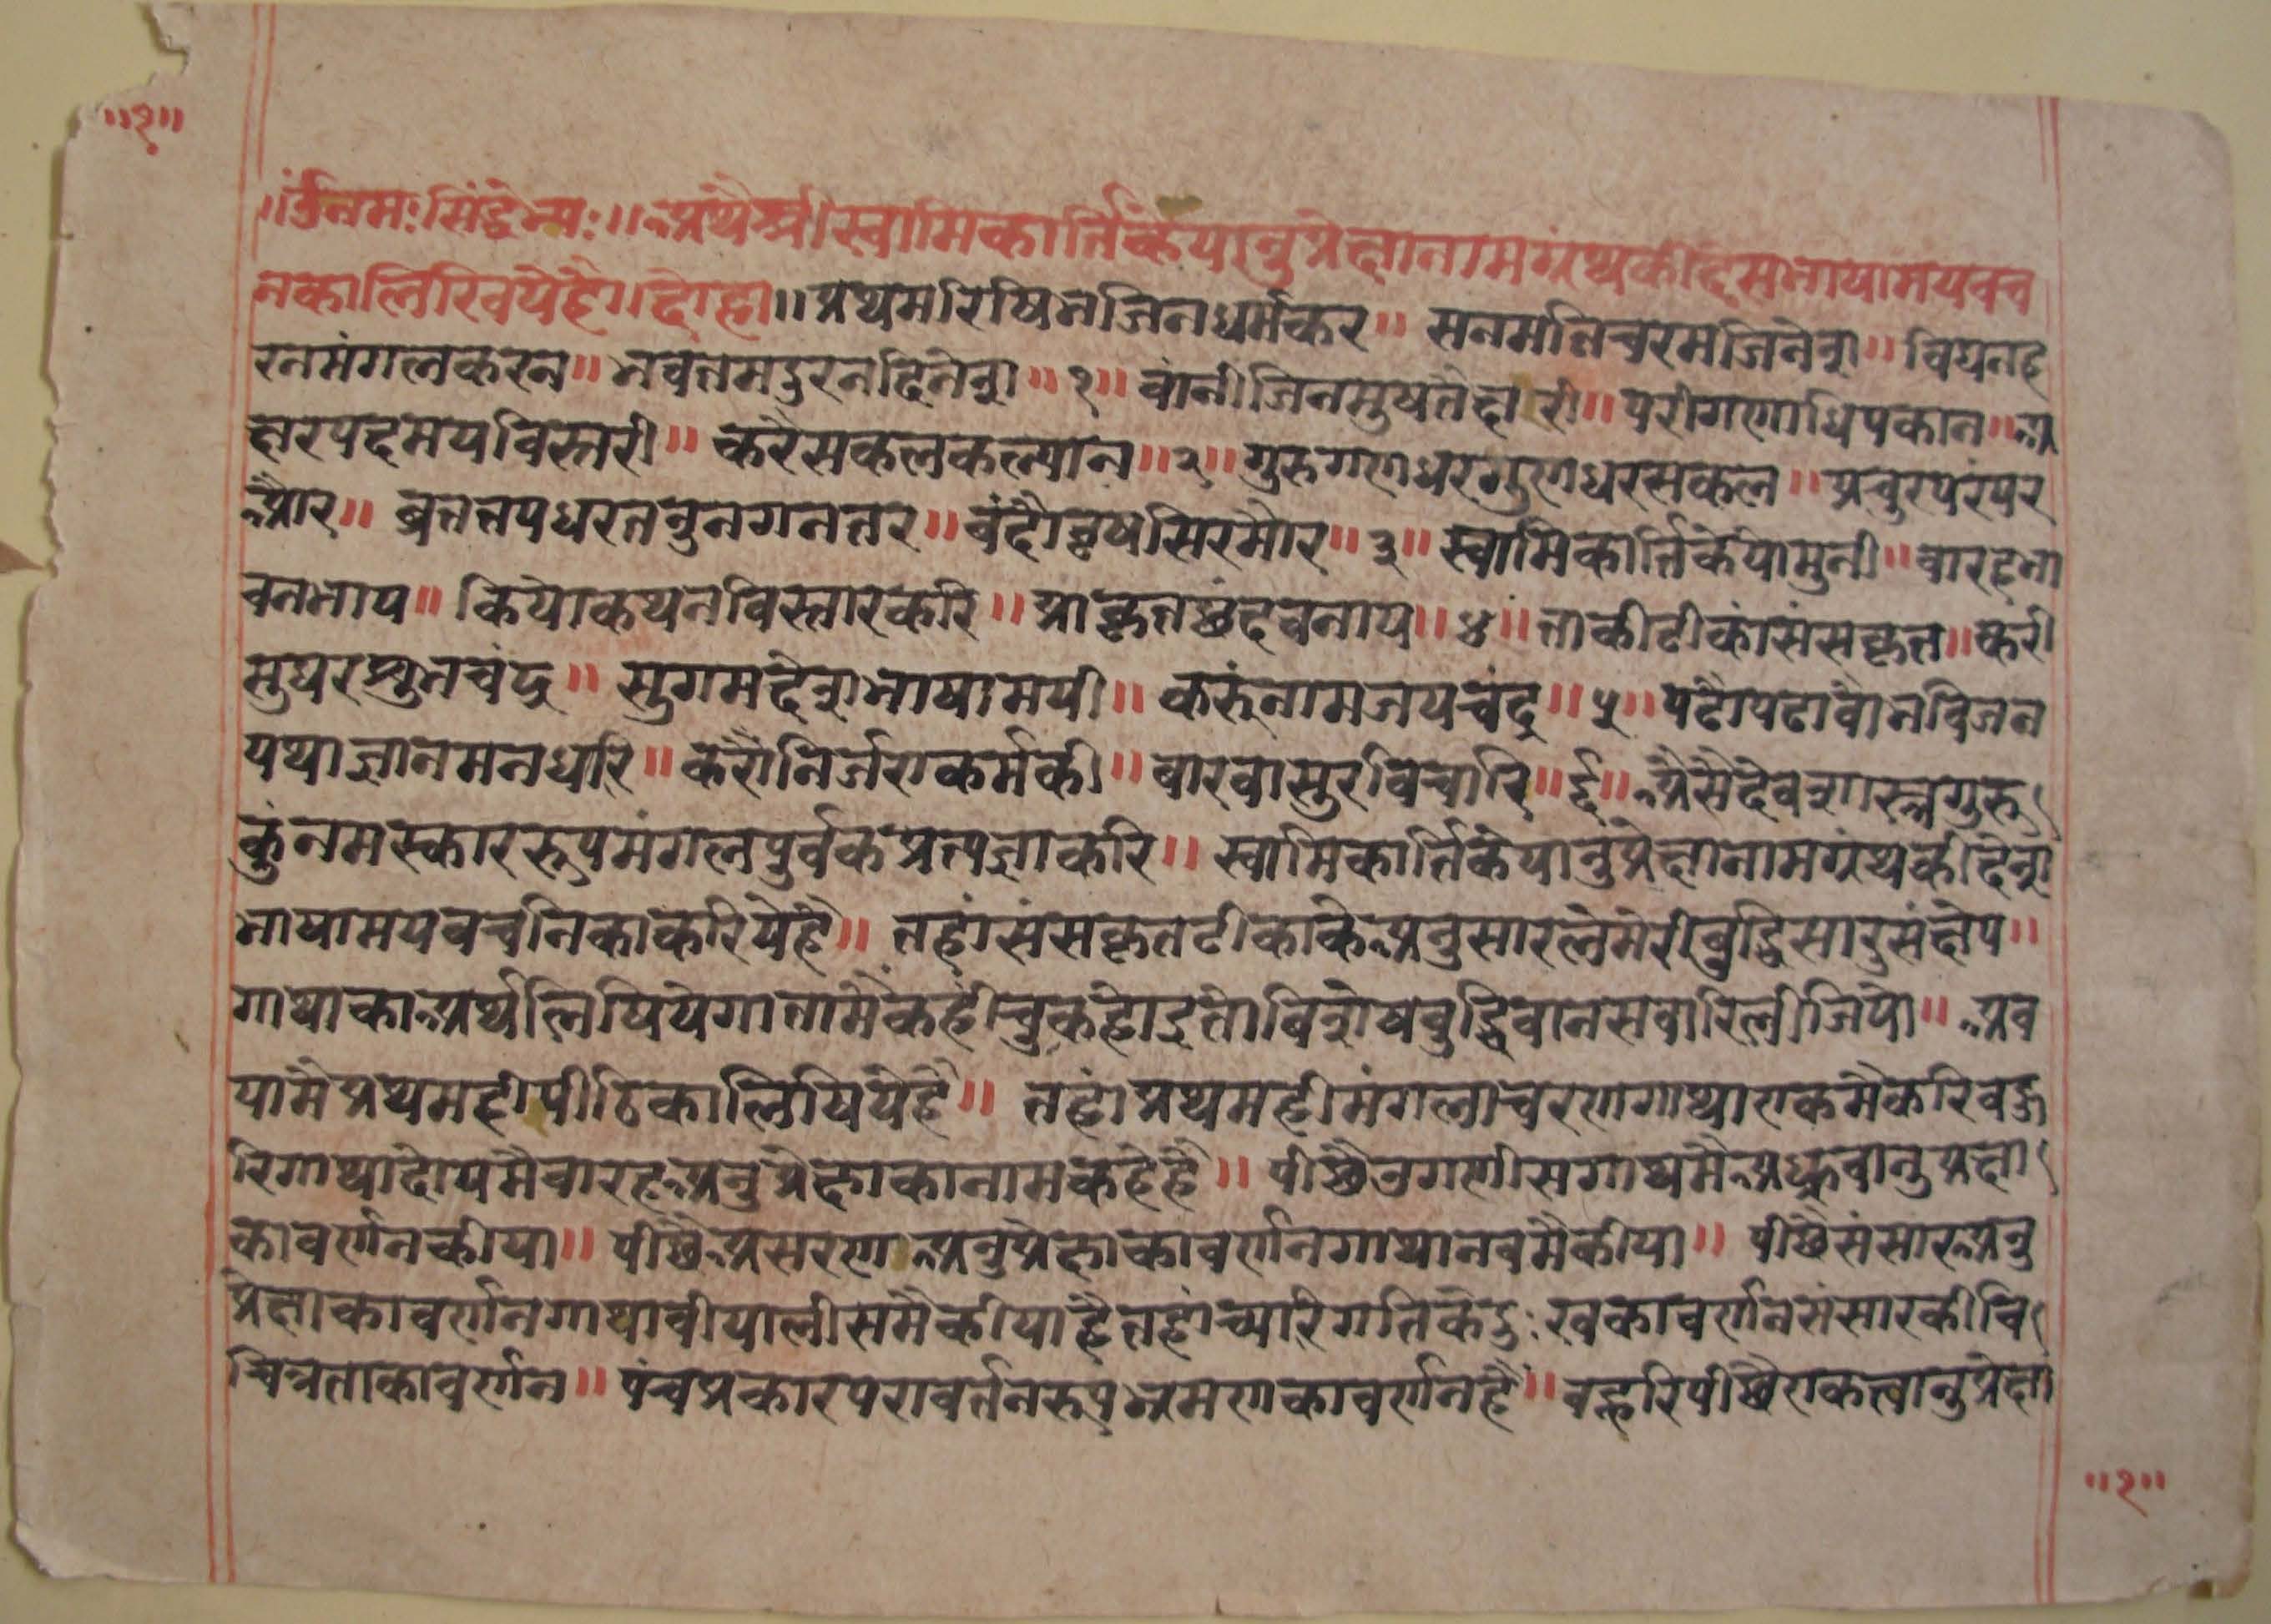 ॥१॥
॥र्उनमःसिंद्धेभ्यः॥अथैश्रीस्वामिकार्त्तिकेयानुप्रेक्षानामग्रंथकीदेसभाषामयवच
नकालिखियेहै॥दोहा॥प्रथमरिषिभजिनधर्मकर॥सनमतिचरमजिनेश॥विघनह
रनमंगलकरन॥भवतमदुरनदिनेश॥१॥वांनीजिनमुषतैहारी॥परीगणाधिपकान॥अ
क्षरपदमयविस्तरी॥करैसकलकल्यान॥२॥गुरुगणधरगुणधरसकल॥प्रचुरपरंपर
और॥ब्रततपधरतनुनगनतर॥वंदौवृषसिरमौर॥३॥स्वामिकार्त्तिकेयोमुनी॥वारहभा
वनभाय॥कियोकथनविस्तारकरि॥प्राकृतछंदवनाय॥४॥ताकीटीकांसंसकृत॥करी
सुघरशुभचंद्र॥सुगमदेशभाषामयी॥करुंनामजयचंद्र॥५॥पढौपढावौभविजन
यथाज्ञानमनधारि॥करौनिर्जराकर्मकी॥वारवासुरविचारि॥६॥अैसैदेवशास्त्रगुरु
कुंनमस्काररुपमंगलपुर्वकप्रत्यज्ञाकरि॥स्वामिकार्त्तिकेयानुप्रेक्षानामग्रंथकीदेश
भाषामयवचनिकाकरियेहै॥तहांसंसकृतटीकाकेअनुसारलेमेरीबुद्धिसारुसंक्षेप॥
गाथाकाअर्थलिषियेगातामैकहीचुकहोइतोविशेषवुद्धिवानसवारिलीजियो॥अव
यामैप्रथमहीपीठिकालिषियेहै॥तहांप्रथमहीमंगलाचरणगाथाएकमैकरिवहु
रिगाथादोयमैवारहअनुप्रेक्षाकानामकहेहै॥पीछैउगणीसगाथमैअध्रुवानुप्रक्षा
कावर्णनकीया॥पीछैअसरणअनुप्रेक्षाकावर्णनगाथानवमैकीया॥पीछैसंसारअनु
प्रेक्षाकावर्णनगाथावीयालीसमैकीयाहैतहांच्यारिगतिकेदुःखकावर्णनसंसारकीवि
चित्रताकावर्णन॥पंचप्रकारपरावर्त्तनरुपभ्रमणकावर्णनहै॥वहुरिपीछैएकत्वानुप्रेक्षा
॥१॥